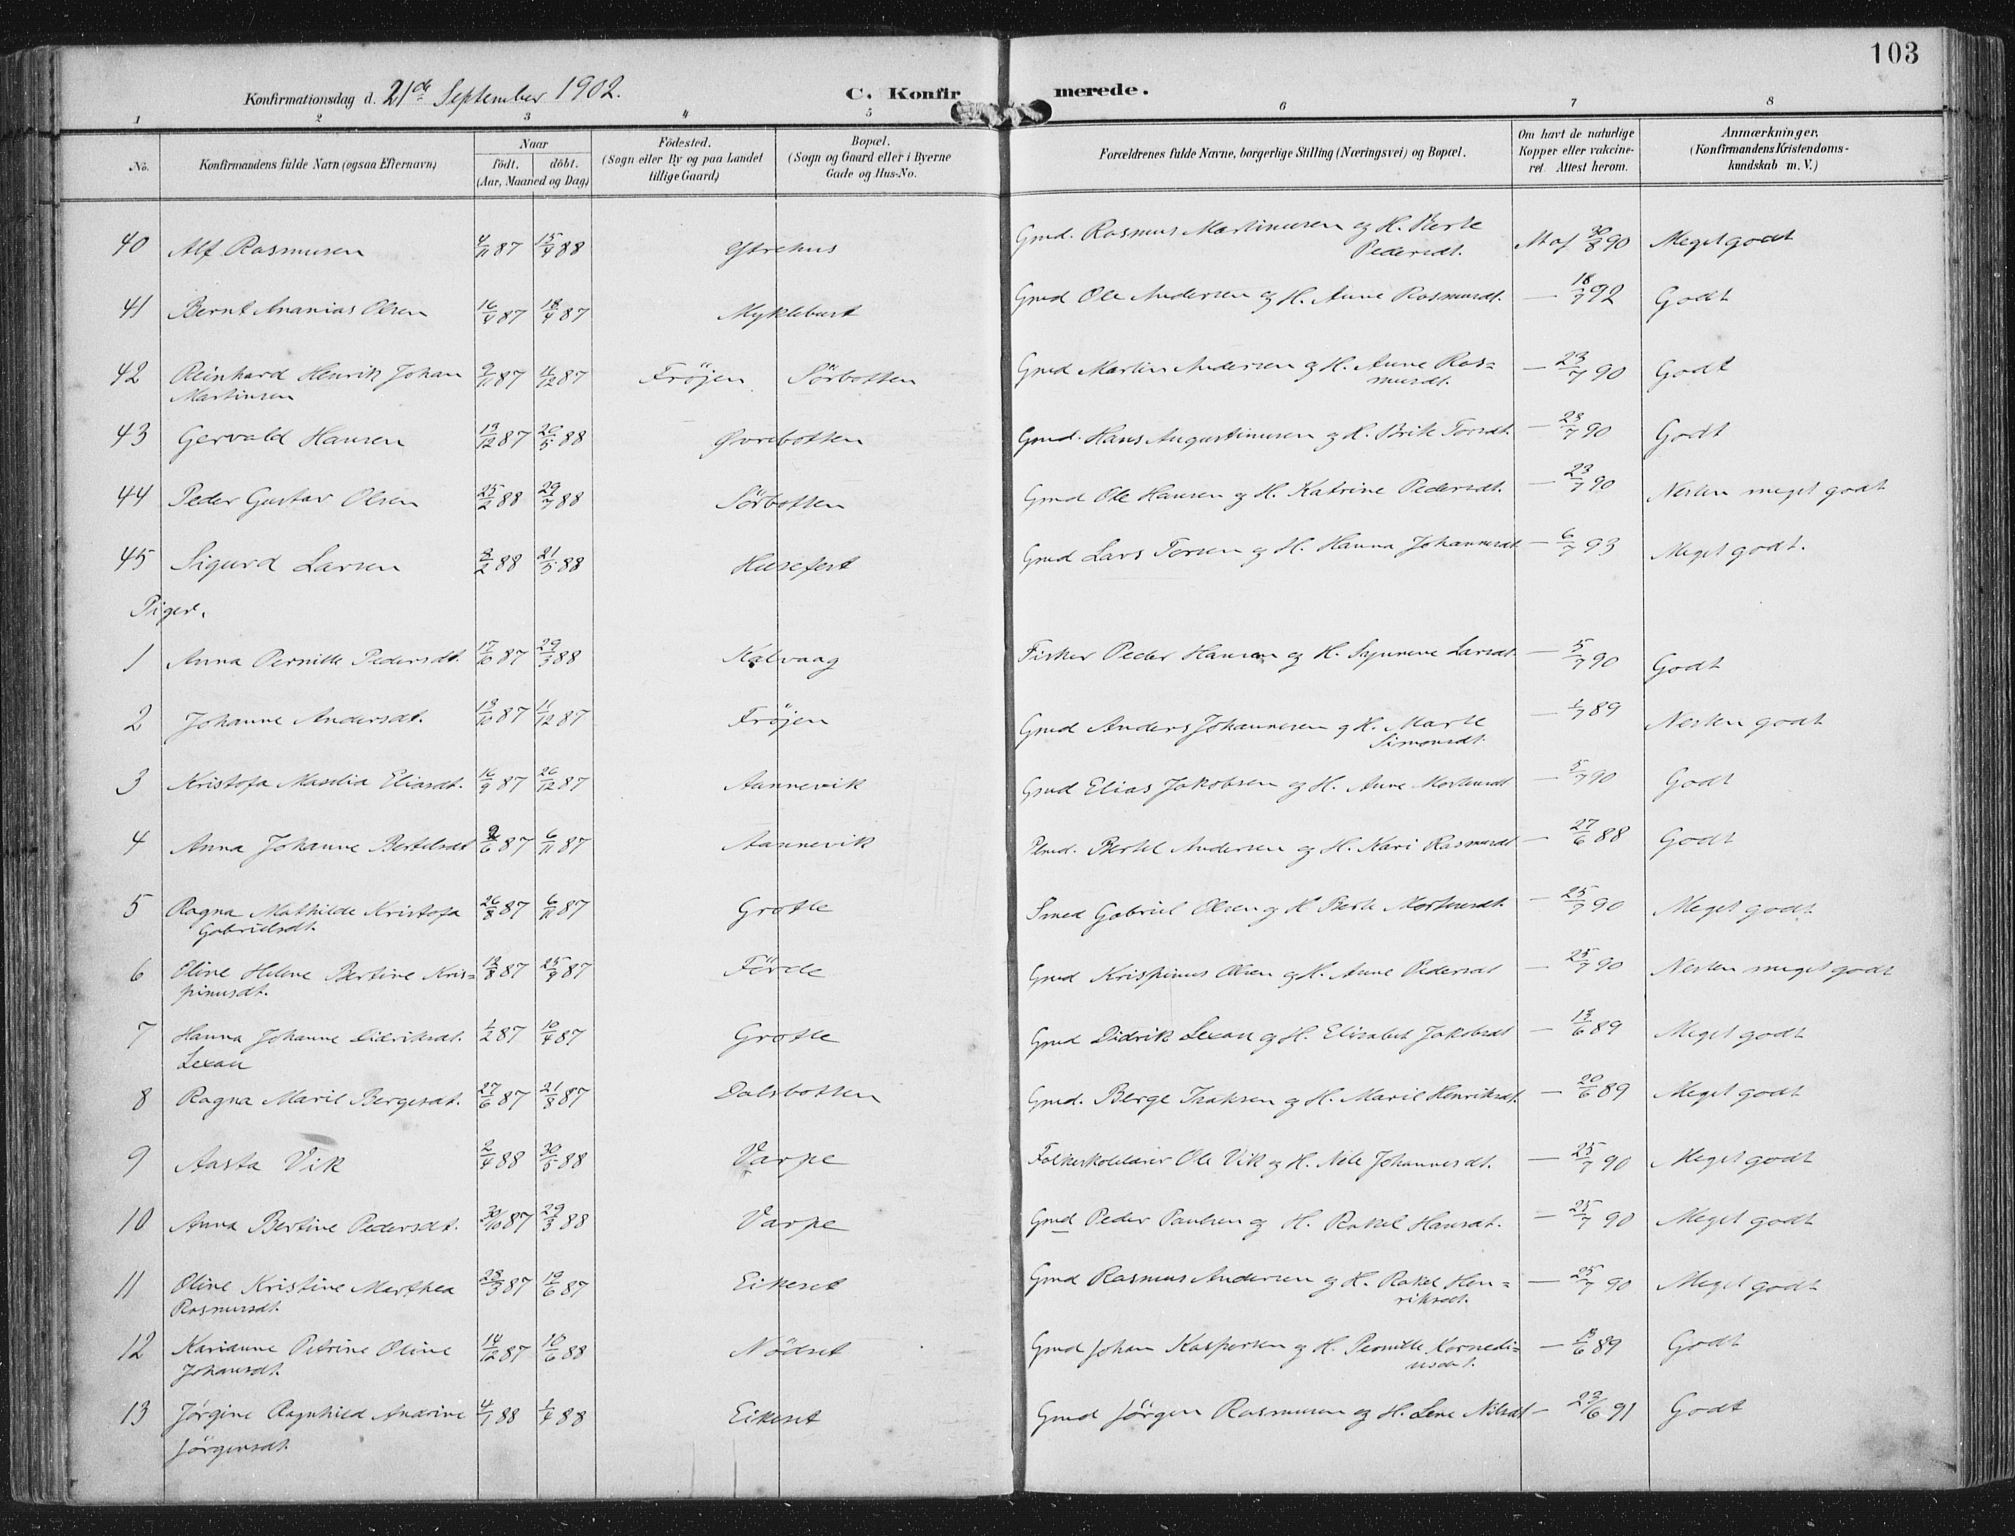 103
Konfirmationsdag d. 21de September 1902. C. Konfirmerede.
1 2 3 4 5 6 7 8
No. Konfirmandens fulde Navn (ogsaa Efternavn) Naar født. døbt. (Aar, Maaned og Dag) Fødested. (Sogn eller By og paa Landet tillige Gaard) Bopæl. (Sogn og Gaard eller i Byerne Gade og Hus-No. Forældrenes fulde Navne, borgerlige Stilling (Næringsvei) og Bopæl. Om havt de naturlige Kopper eller vakcineret. Attest herom. Anmærkninger. (Konfirmandens Kristendomskundskab m. V.)
40 Alf Rasmusen 4/11 87 15/4 88 Ytrehus Gmd. Rasmus Martinusen og H. Berte Pedersdt. At af 30/8 90 Meget godt
41 Bernt Ananias Olsen 16/4 87 18/4 87 Myklebust Gmd Ole Andersen og H. Anne Rasmusdt. — 18/7 92 Godt
42 Reinhard Henrik Johan Martinsen 9/11 87 11/12 87 Frøjen Sørbotten Gmd Martin Andersen og H. Anne Rasmusdt. — 23/7 90 Godt
43 Gervald Hansen 13/12 87 20/5 88 Øvrebotten Gmd. Hans Augustinusen og H. Brite Torsdt. — 23/7 90 Godt
44 Peder Gustav Olsen 25/2 88 29/7 88 Sørbotten Gmd Ole Hansen og H. Katrine Pedersdt. — 23/7 90 Nesten meget godt
45 Sigurd Larsen 3/2 88 21/5 88 Husefest Gmd Lars Torsen og H. Hanna Johannesdt — 6/7 93 Meget godt.
Piger.
1 Anna Pernille Pedersdt. 17/10 87 29/3 88 Kalvaag Fisker Peder Hansen og H. Synneve Larsdt — 5/7 90 Godt
2 Johanne Andersdt. 13/10 87 11/12 87 Frøjen Gmd Anders Johannesen og H. Marte Simonsdt. — 1/7 89 Nesten godt
3 Kristofa Maselia Eliasdt. 16/9 87 26/12 87 Aannevik Gmd Elias Jakobsen og H. Anne Mortensdt — 5/7 90 Godt
4 Anna Johanne Bertelsdt 6 87 6/11 87 Aannevik Bertel Andersen og H. Kari Rasmusdt — 27/6 88 Godt
5 Ragna Mathilde Kristofa Gabrielsdt. 26/8 87 6/11 87 Grotle Smed Gabriel Olsen og H Berte Mortensdt. — 25/7 90 Meget godt
6 Oline Helene Bertine Krispinusdt. 13/8 87 25/9 87 Førde Gmd Krispinus Olsen og H. Anne Pedersdt — 25/7 90 Nesten meget godt
7 Hanna Johanne Didriksdt. Lexau 1/2 87 10/4 87 Grotle Gmd Didrik Lexau og H. Elisabet Jakobsdt — 13/6 89 Meget godt
8 Ragna Marie Bergesdt. 27/6 87 21/8 87 Dalsbotten Gmd. Berge Isaksen og H. Marie Henriksdt. — 20/6 89 Meget godt
9 Aasta Vik 2/4 88 30/5 88 Varpe Folkeskolelærer Ole Vik og H. Nele Johannesdt. — 25/7 90 Meget godt
10 Anna Bertine Pedersdt. 30/10 87 29/3 88 Varpe Gmd Peder Paulsen og H. Rakel Hansdt. — 25/7 90 Meget godt
11 Oline Kristine Marthea Rasmusdt. 28/3 87 19/6 87 Eikeset Gmd Rasmus Andersen og H. Rakel Henriksdt. — 25/7 90 Meget godt
12 Karianne Petrine Oline Johansdt. 14/12 87 10/6 88 Nødset Gmd Johan Kaspersen og H. Pernille Korneliusdt. — 13/6 89 Godt
13 Jørgine Ragnhild Andrine Jørgensdt. 4/1 88 1/4 88 Eikeset Gmd Jørgen Rasmusen og H. Lene Nilsdt — 23/6 91 Godt